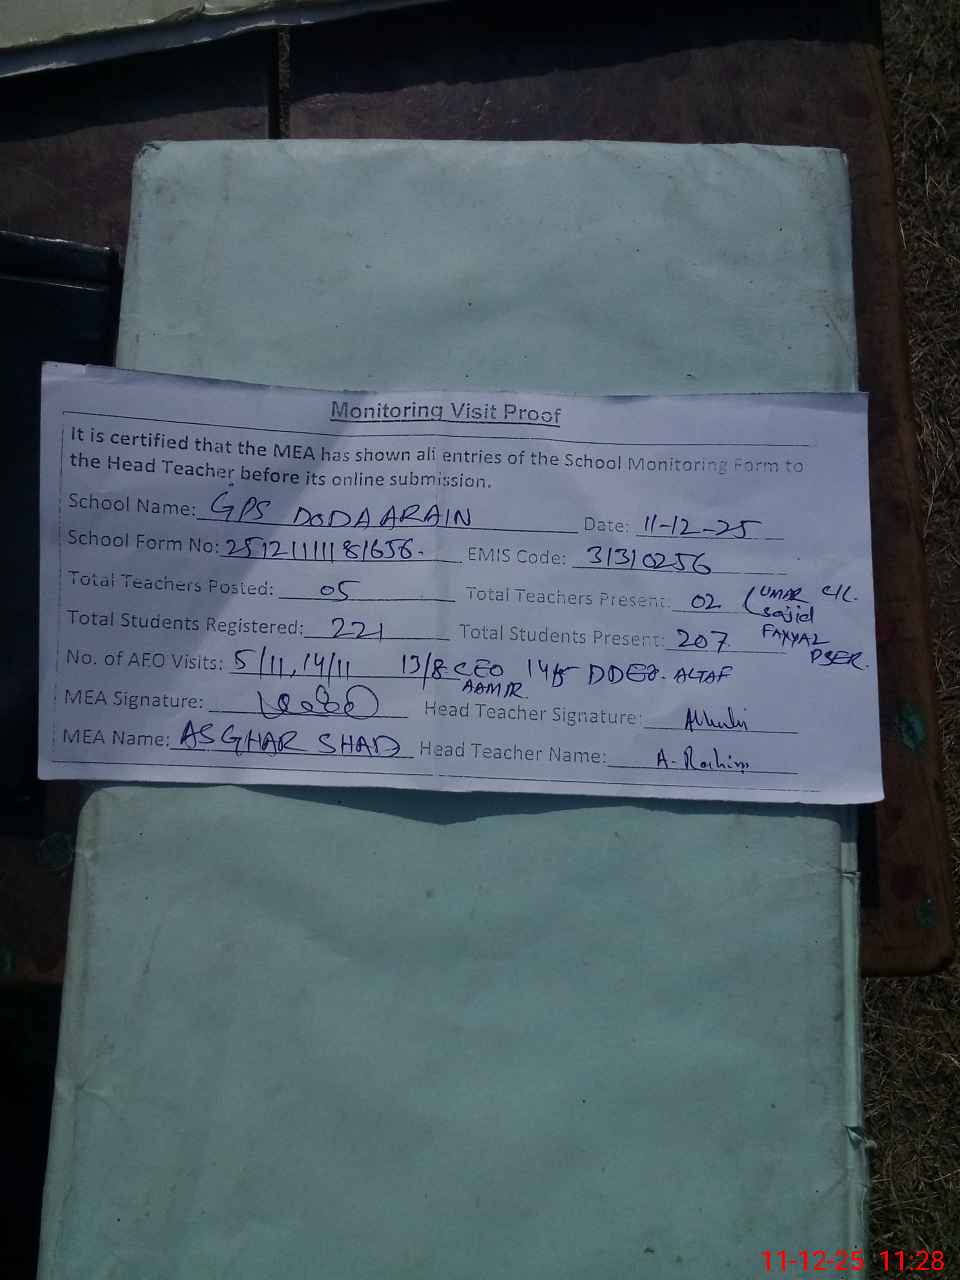 Monitoring Visit Proof
It is certified that the MEA has shown all entries of the School Monitoring Form to
the Head Teacher before its online submission.
School Name: GPS DODA ARAIN Date: 11-12-25
School Form No: 251211111181656. EMIS Code: 31310256
Total Teachers Posted: 05 Total Teachers Present: 02 (UMAR C/L.
Sajid
Total Students Registered: 221 Total Students Present: 207. FAYYAZ
PSER.
No. of AEO Visits: 5/11, 14/11 13/8 CEO 14/5 DDEO. ALTAF
AAMIR.
MEA Signature: Head Teacher Signature:
MEA Name: ASGHAR SHAD Head Teacher Name: A. Rahim
11-12-25 11:28